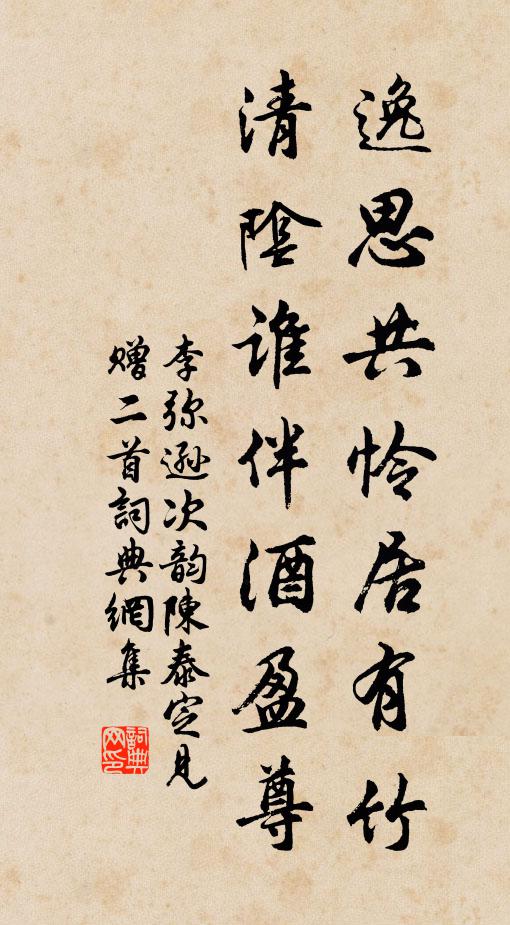 逸思共怜居有竹
清陰谁伴酒盈尊
李弥遜次韵陳泰定見
赠二首詞典網集
詞典网印